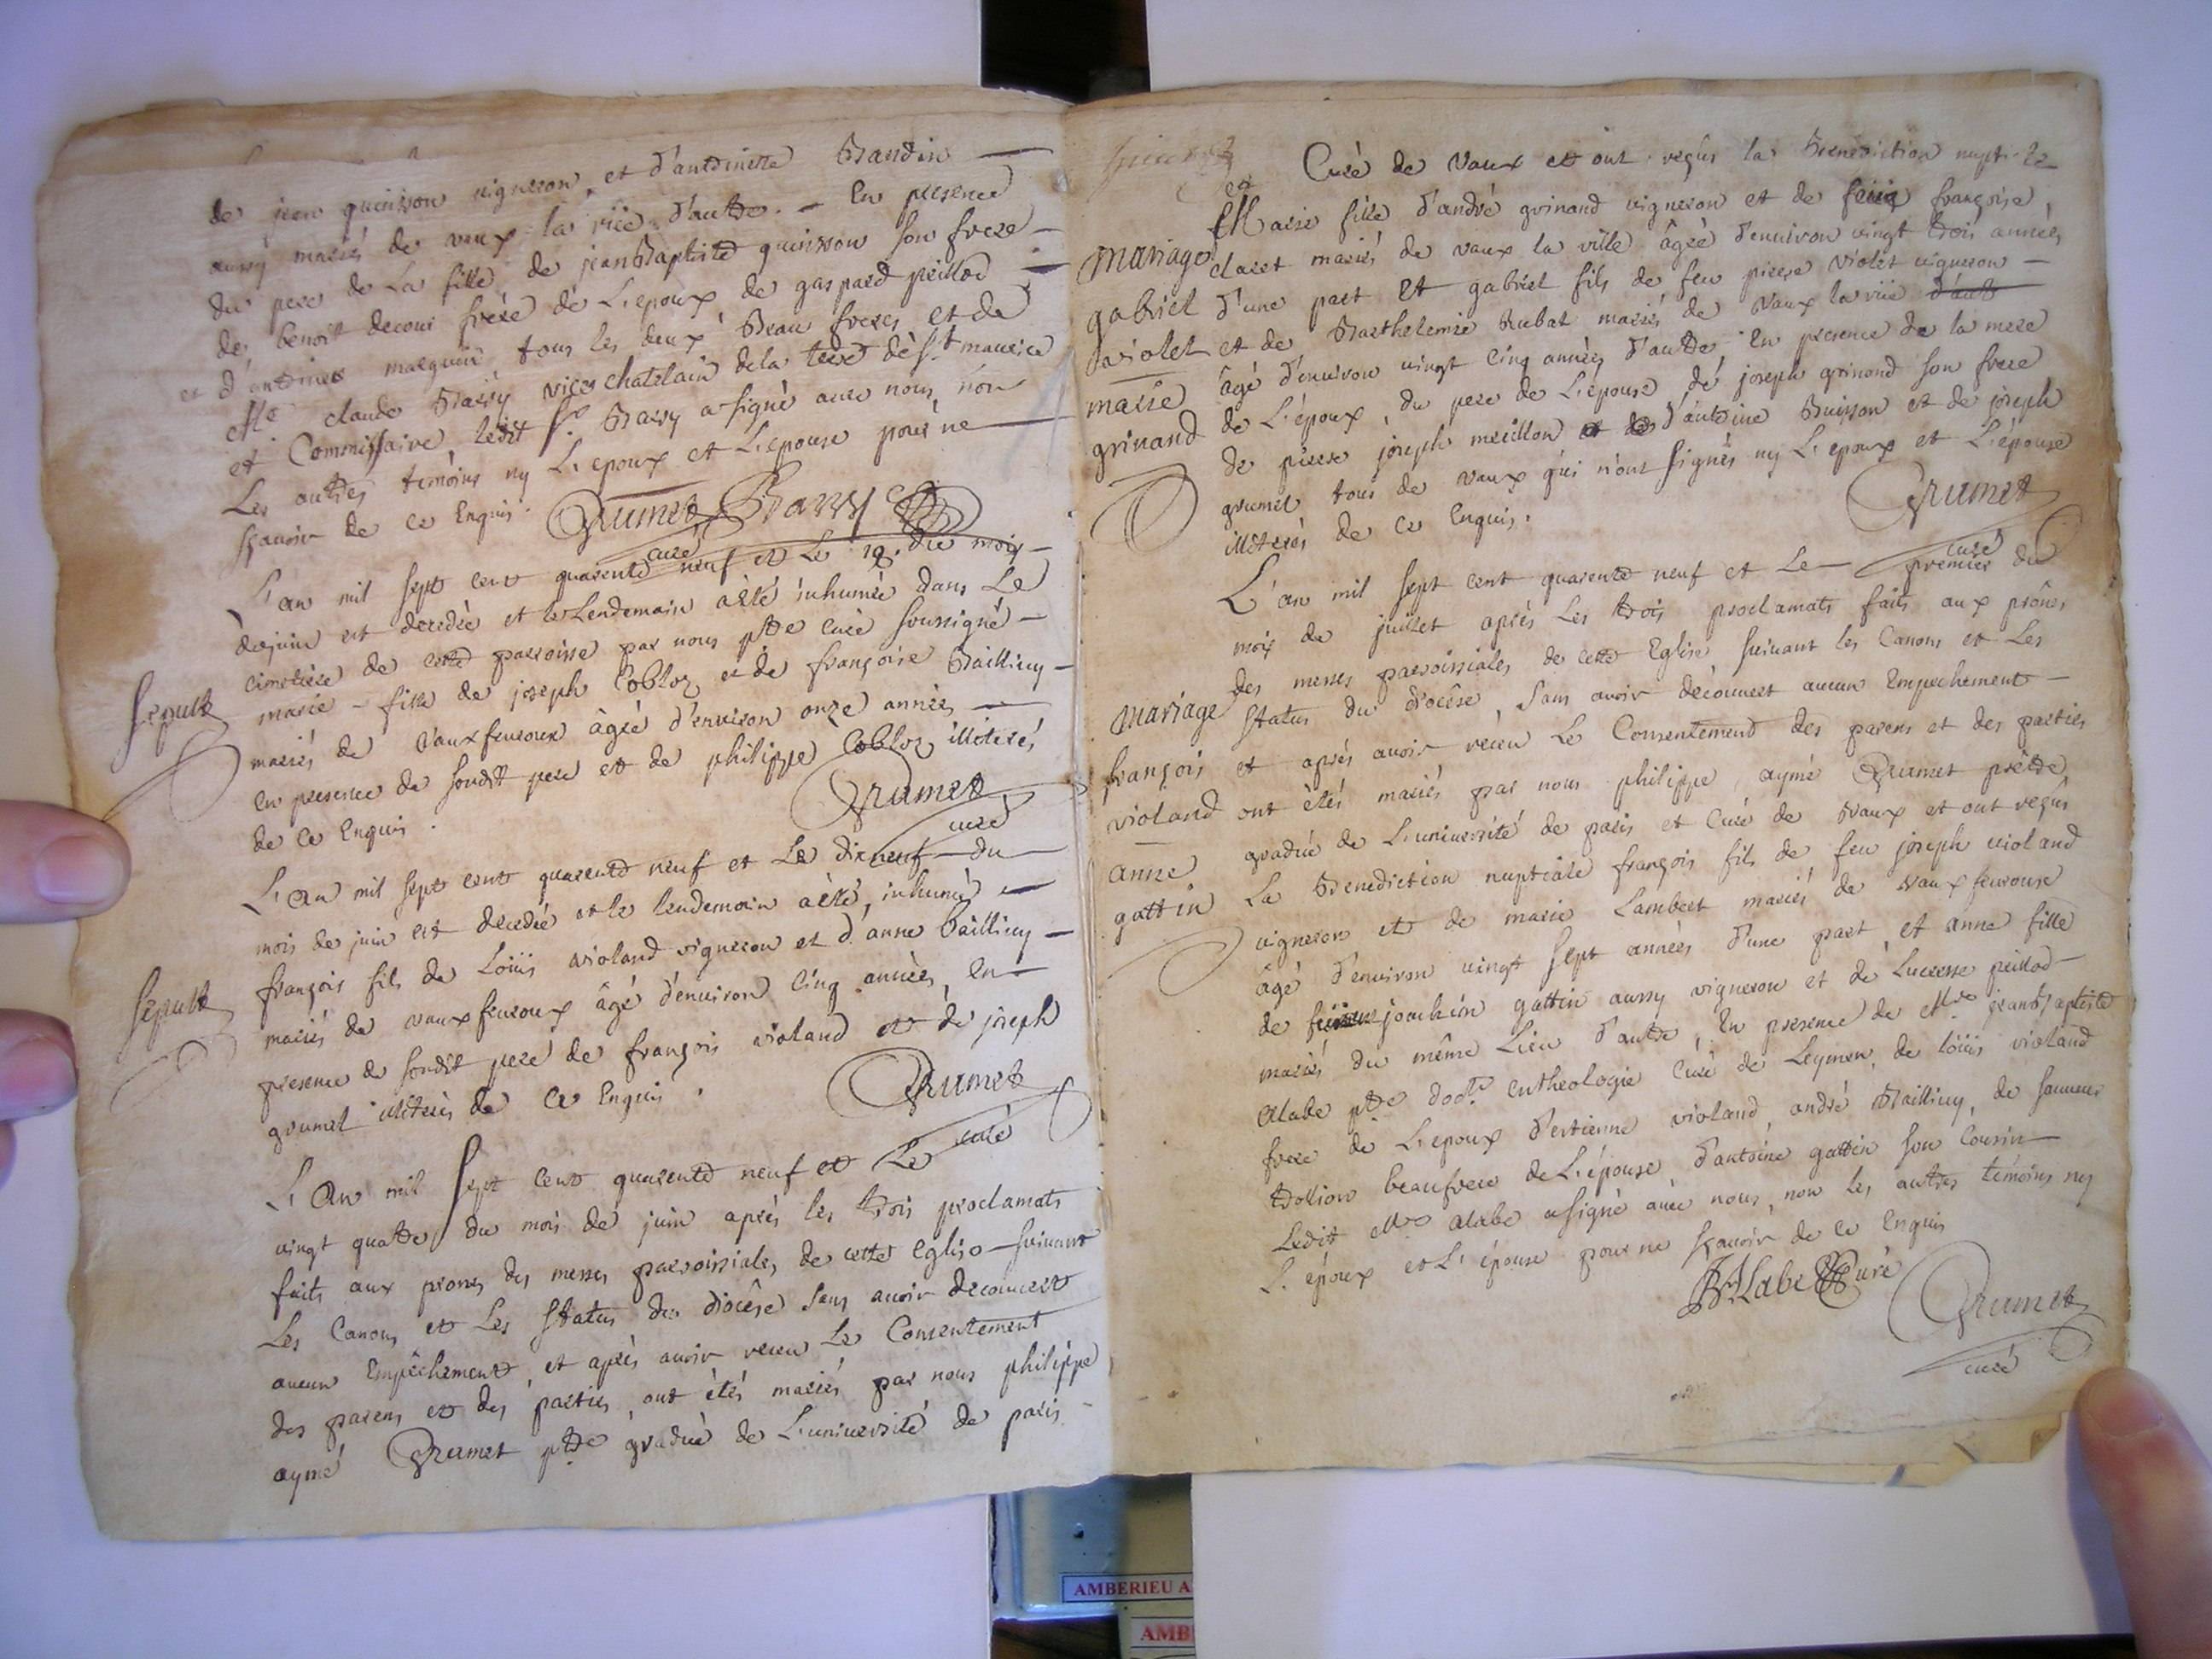 de jean quinson vigneron, et d'antoinette Baudin —
aussy mariés de vaux la vile d'autre. — En presence
du pere de La fille, de jeanBaptiste quinson son frere —
de benoit decour frère de L'epoux, de gaspard peillod —
et d'antoine marguin tous les deux Beau freres, et de
Me claude Barry vice chatelain dela terre de St maurice
et Commissaire, ledit Sr Barry a signé avec nous, non
Les autres temoins ny L'epoux et L'epouse pour ne —
sçavoir de ce Enquis. Grumet Barry
curé
L'an mil sept cent quarente neuf et Le 18. du mois —
dejuin est decedée et le Lendemain a èté inhumée dans Le
cimetiere de cette parroisse par nous ptre curé soussigné —
Sepult
marie – fille de joseph Cobloz et de françoise Baillivy —
mariés de vauxfevroux âgée d'environ onze années —
en presence de sondt pere et de philippe Cobloz illiterés
de ce Enquis.
Grumet
curé
L'an mil sept cent quarente neuf et Le dixneuf — du —
mois de juin est decedé et le lendemain a èté, inhumé —
Sepult
françois fils de Loüis violand vigneron et d'anne baillivy —
mariés de vauxfevroux âgé d'environ cinq années, En —
presence de sondt pere de françois violand et de joseph
grumet illiterés de ce Enquis.
Grumet
curé
L'an mil sept cent quarente neuf et Le
vingt quatre du mois de juin après les trois proclamats
faits aux prones des messes parroissiales, de cette Eglise suivant
Les Canons et Les statuts du diocêse sans avoir decouvert
aucun Empêchement, et après avoir receu Le Consentement
des parens et des parties, ont étés mariés par nous philippe
aymé Grumet ptre gradué de L'université de paris
Curé de Vaux et ont reçûs la Benediction nuptiale
Marie fille d'andré grinand vigneron et de feüe françoise
mariage
claret mariés de vaux la ville âgée d'environ vingt trois années
gabriel
d'une part Et gabriel fils de feu pierre violet vigneron —
violet
et de Barthelemie Rubat mariés de Vaux la vile d'aut
marie
âgé d'environ vingt cinq années d'autre. En presence de la mere
grinand
de L'époux, du pere de L'epouse, de joseph grinand son frere
de pierre joseph meillon et de d'antoine Buisson et de joseph
grumet tous de vaux qui n'ont signés ny L'epoux et L'épouse
illiterés de ce Enquis.
Grumet
curé
L'an mil sept cent quarente neuf et Le — premier du
mois de juillet après Les trois proclamats faits aux prônes
des messes parroissiales de cette Eglise, suivant les Canons et Les
mariage
statuts du diocêse, sans avoir découvert aucun Empechement —
françois
et après avoir receu Le Consentement des parens et des parties
violand
ont étés mariés par nous philippe aymé Grumet prètre,
anne
gradué de L'université de paris et Curé de Vaux et ont reçûs
gattin
La Benediction nuptiale françois fils de feu joseph violand
vigneron et de marie Lambert mariés de Vaux fevroux
âgé d'environ vingt sept années d'une part et anne fille
de joachim gattin aussy vigneron et de Lucresse peillod —
mariés du même Lieu d'autre, En presence de Mre jeanBaptiste
Alabe ptre doctr entheologie Curé de Leymen, de loüis violand
frere de L'epoux d'estienne violand, andré Baillivy, de
beaufrere de L'épouse, d'antoine gattin son Cousin —
Ledit Mre alabe a signé avec nous, non les autres temoins ny
L'epoux et L'épouse pour ne sçavoir de ce Enquis
Alabe Curé
Grumet
curé
AMBERIEU
AMB